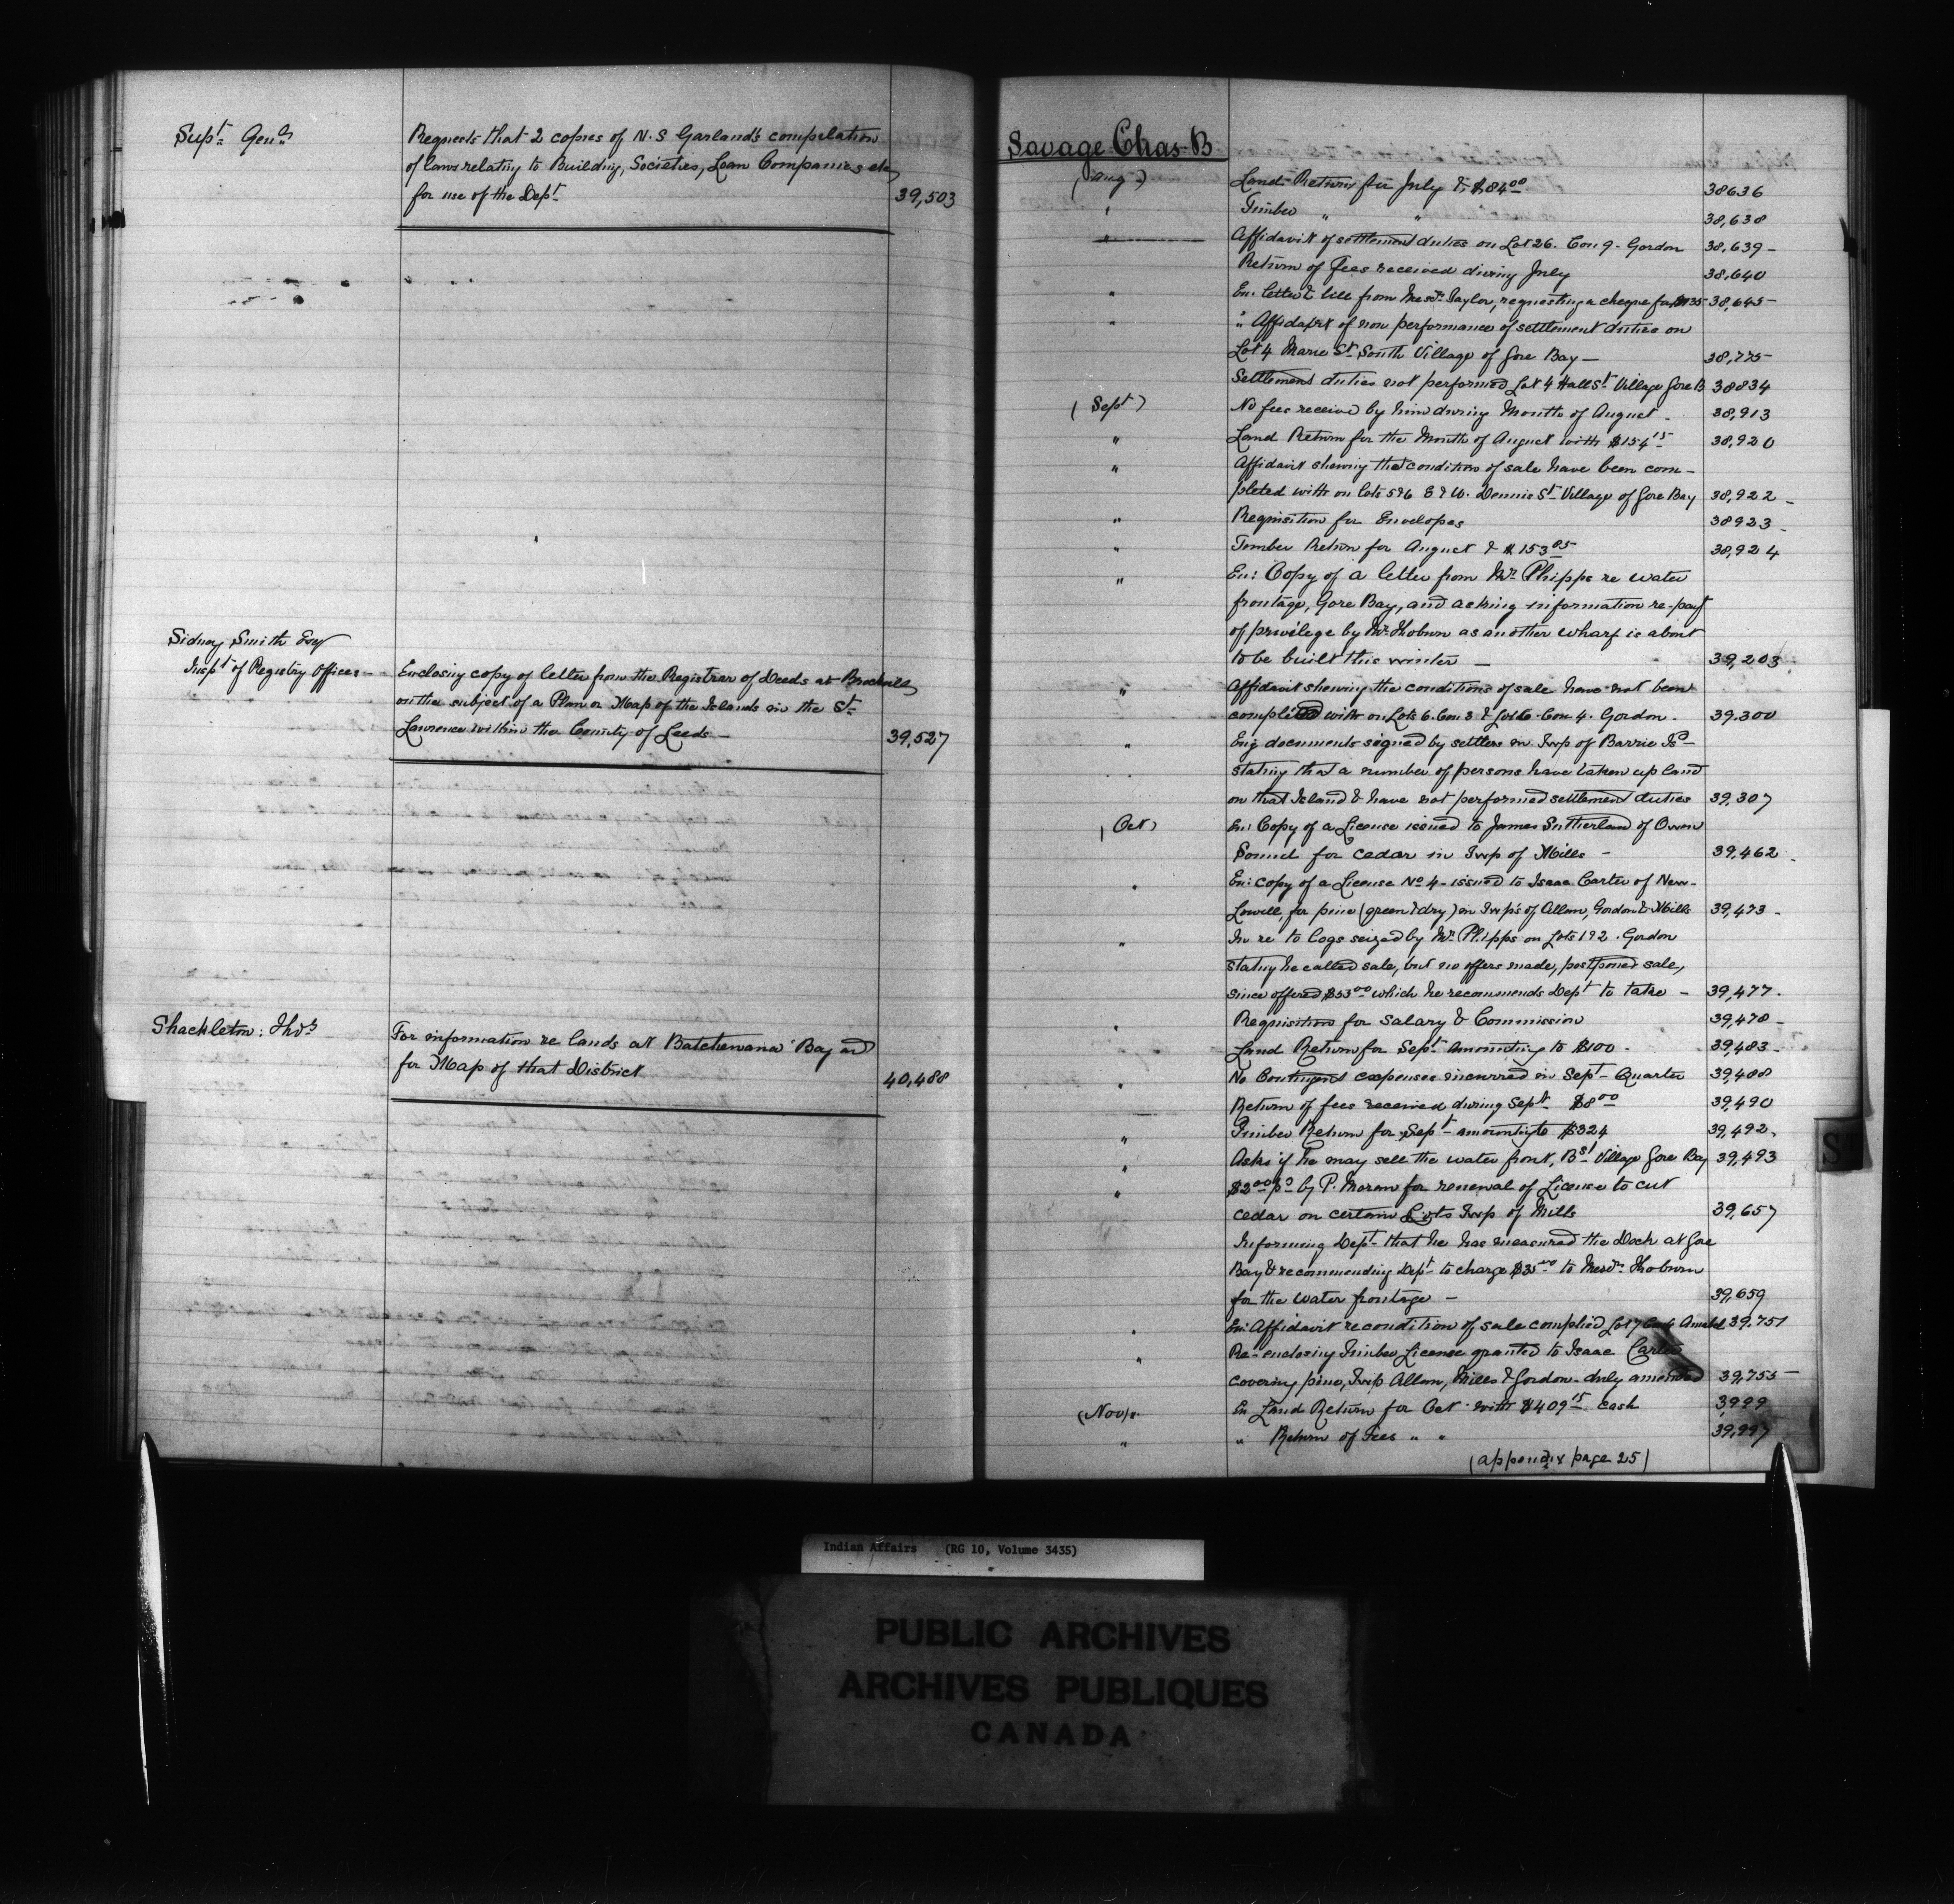 Supt. Genl.
Requests that 2 copies of N. S Garland's compilation
of laws relating to Building, Societies, Loan Companies etc
for use of the Dept. 39,503
Sidney Smith Esq
Inspt of Registry Offices —
Enclosing copy of letter from the Registrar of Deeds at Brockville
on the subject of a Plan or Map of the Islands in the St.
Lawrence within the County of Leeds — 39,527
Shackleton: Thos.
For information re lands at Batchewana Bay and
for Map of that District 40,488
Savage Chas B
(Aug) Land Return for July & $84.00 38636
" Timber " " 38,638
" Affidavit of settlement duties on Lot 26. Con 9. Gordon 38,639 -
Return of Fees received during July 38,640
" En. letter & bill from Messrs Taylor, requesting a cheque for $135 38,645 -
" " Affidavit of non performance of settlement duties on
Lot 4 Marie St. South Village of Gore Bay — 38,775
Settlement duties not performed Lot 4 Hall St Village Gore B 38834
(Sept) No fees receive by him during Month of August - 38,913
" Land Return for the Month of August with $154.15 38,920
" Affidavit shewing that condition of sale have been com-
pleted with on lots 5 & 6 E & W. Dennis St. Village of Gore Bay 38,922 -
" Requisition for Envelopes 38923 -
" Timber Return for August & $153.85 38,924
" En: Copy of a letter from Mr. Phipps re water
frontage, Gore Bay, and asking information re-payt
of privilege by Mr. Thoburn as another wharf is about
to be built this winter — 39,203
" Affidavit shewing the conditions of sale have not been
complied with on Lots 6. Con 3 & Lot 6. Con 4. Gordon. 39,300
" Eng documents signed by settlers in Twp of Barrie Isd —
stating that a number of persons have taken up land
on that Island & have not performed settlement duties 39,307
(Oct) En: Copy of a License issued to James Sutherland of Owen
Sound for cedar in Twp of Mills - 39,462 -
" En: copy of a License No 4 - issued to Isaac Carter of New-
Lowell, for pine (green & dry) in Twp's of Allan, Gordon & Mills 39,473 -
" In re to logs seized by Mr. Phipps on Lots 1 & 2. Gordon
stating he called sale, but no offers made, postponed sale,
since offered $53.00 which he recommends Dept to take - 39,477 -
" Requisition for Salary & Commission 39,478 -
Land Return for Sept. amounting to $100 - 39,483 -
" No Contingent expenses incurred in Sept - Quarter 39,488
Return of fees received during Sept. $8.00 39,490
" Timber Return for Sept - amounting to $324 39,492.
" Asks if he may sell the water front, B St Village Gore Bay 39,493
" $2.00 pd by P. Moran for renewal of License to cut
cedar on certain Lots Twp of Mills 39,657
Informing Dept. that he has measured the Dock at Gore
Bay & recommending Dept to charge $35.00 to Messrs. Thoburn
for the water frontage - 39,659
" En: Affidavit re condition of sale complied Lot 7 39,751
" Re-enclosing Timber License granted to Isaac Carter
covering pine, Twp Allan, Mills & Gordon - duly amended 39,755 -
(Nov). En Land Return for Oct. with $409.15 cash 3999
" " Return of Fees " " 39,997
(appendix page 25)
S
Indian Affairs (RG 10, Volume 3435)
PUBLIC ARCHIVES
ARCHIVES PUBLIQUES
CANADA